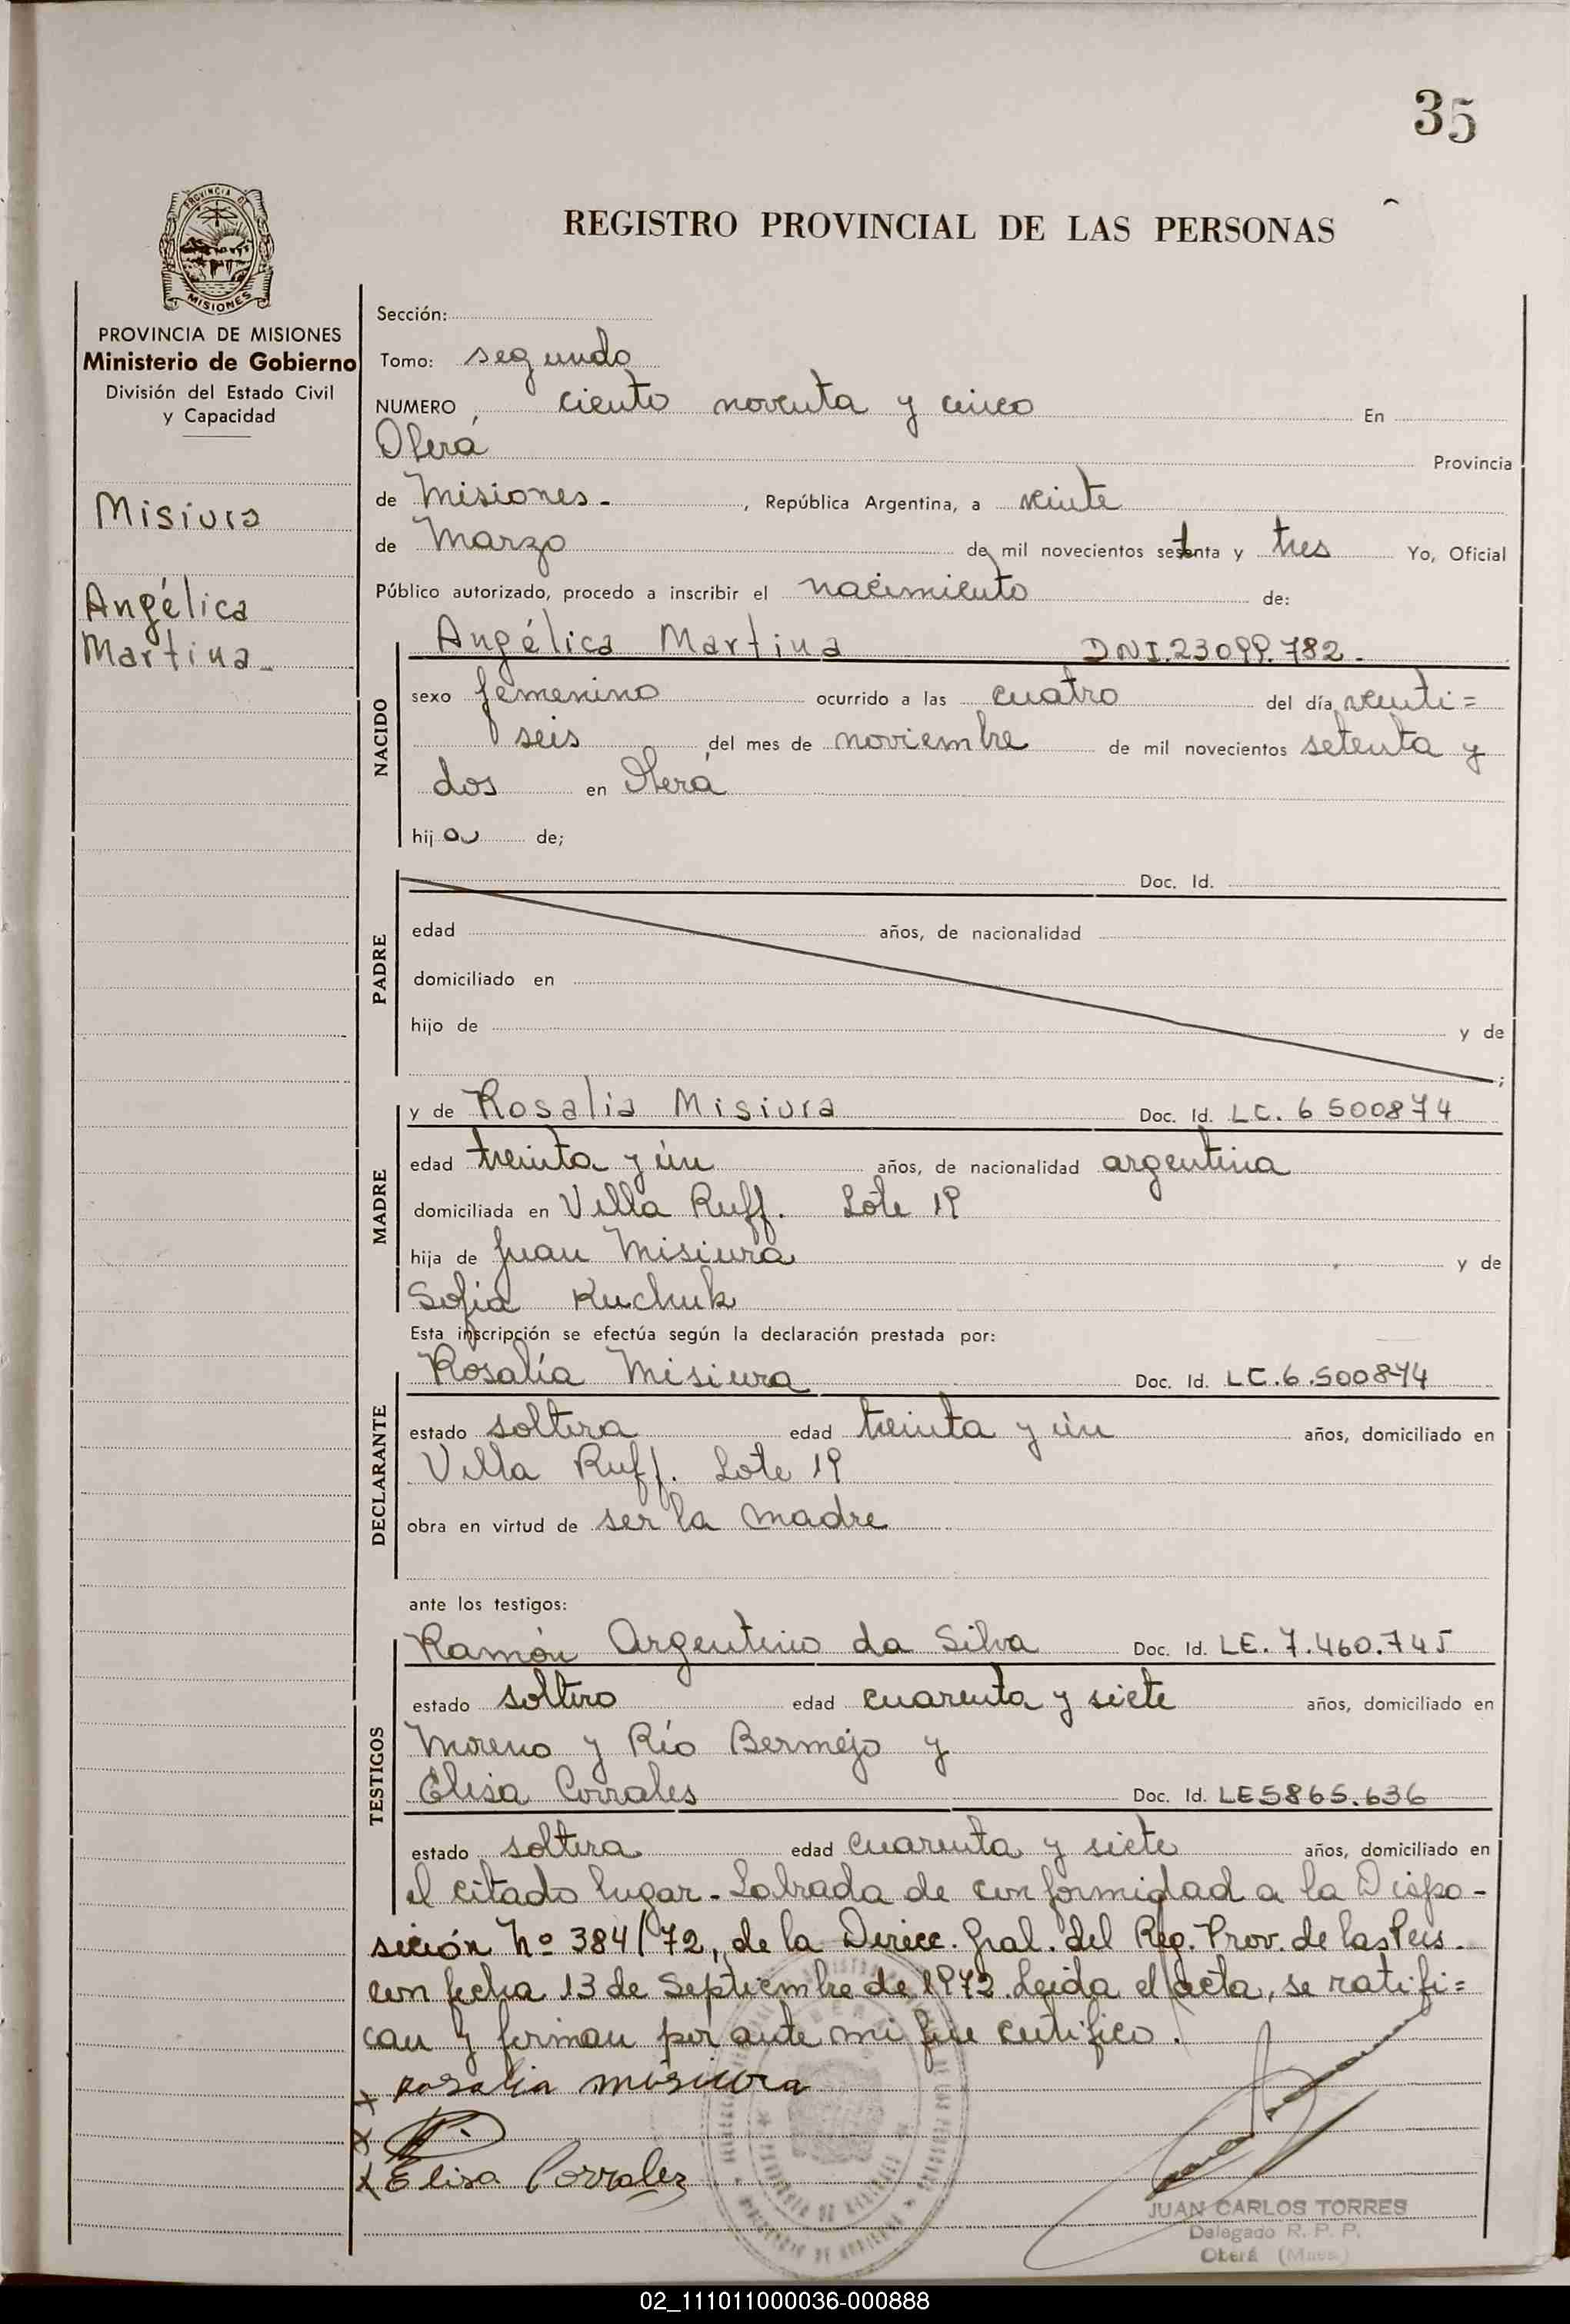 35
REGISTRO PROVINCIAL DE LAS PERSONAS
PROVINCIA DE
MISIONES
PROVINCIA DE MISIONES
Ministerio de Gobierno
División del Estado Civil
y Capacidad
Misiura
Angélica
Martina-
Sección:
Tomo: segundo
NUMERO, ciento noventa y cinco En
Oberá Provincia
de Misiones-, República Argentina, a veinte
de Marzo de mil novecientos setenta y tres Yo, Oficial
Público autorizado, procedo a inscribir el nacimiento de:
NACIDO
Angélica Martina DNI.23099.782.
sexo femenino ocurrido a las cuatro del día venti=
seis del mes de noviembre de mil novecientos setenta y
dos en Oberá
hija de;
PADRE
Doc. Id.
edad años, de nacionalidad
domiciliado en
hijo de y de
;
MADRE
y de Rosalia Misiura Doc. Id. LC. 6 500874
edad treinta y ún años, de nacionalidad argentina
domiciliada en Villa Ruff. Lote 19
hija de Juan Misiura y de
Sofia Kuchuk
Esta inscripción se efectúa según la declaración prestada por:
DECLARANTE
Rosalía Misiura Doc. Id. LC.6.500874
estado soltera edad treinta y ún años, domiciliado en
Villa Ruff. Lote 19
obra en virtud de ser la madre
ante los testigos:
TESTIGOS
Ramón Argentino da Silva Doc. Id. LE. 7.460.745
estado soltero edad cuarenta y siete años, domiciliado en
Moreno y Río Bermejo y
Elisa Corrales Doc. Id. LE5865.636
estado soltera edad cuarenta y siete años, domiciliado en
el citado lugar- Labrada de conformidad a la Dispo-
sición Nº 384/72, de la Direcc. Gral. del Reg. Prov. de las Pers.
con fecha 13 de Septiembre de 1972. Leida el acta, se ratifi=
can y firman por ante mi que certifico.
x rosalia misiura
x
x Elisa Corrales
JUAN CARLOS TORRES
Delegado R. P. P.
Oberá (Mnes)
02_111011000036-000888